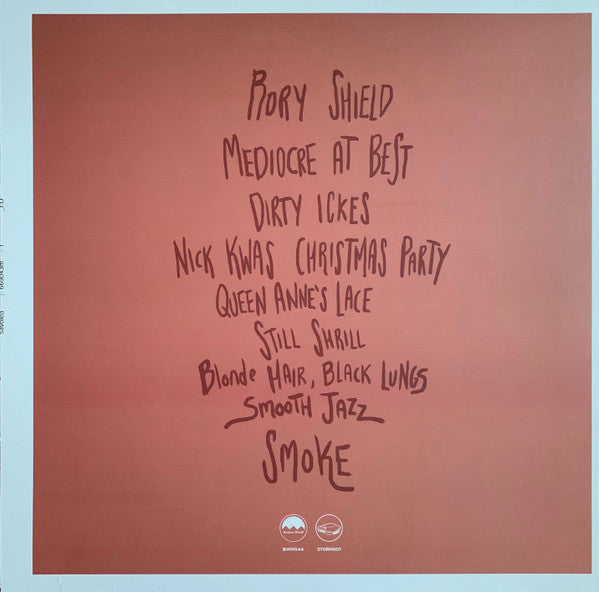 RORY SHIELD
MEDIOCRE AT BEST
DIRTY ICKES
NICK KWAS CHRISTMAS PARTY
QUEEN ANNE'S LACE
STILL SHRILL
BLONDE HAIR, BLACK LUNGS
SMOOTH JAZZ
SMOKE
BWM044 STORM007